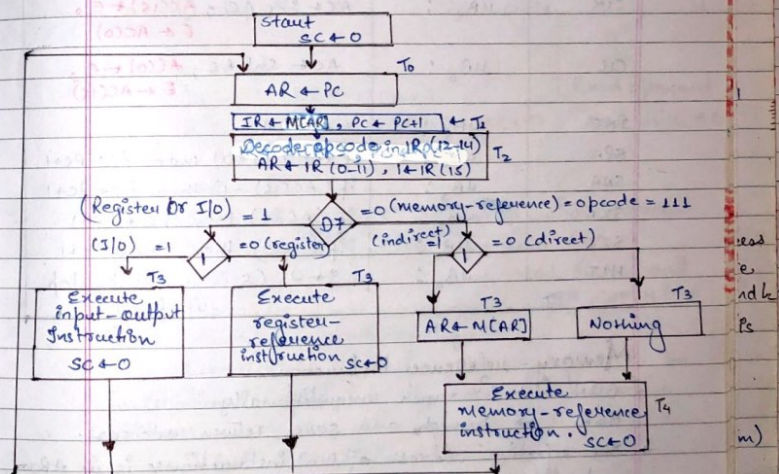 Start
SC←0
T0
AR ← PC
IR ← M[AR], PC ← PC+1 ← T1
Decode opcode in IR (12-14)
AR ← IR (0-11), I ← IR (15)
T2
(Register or I/O) = 1
D7
=0 (memory-reference) = opcode = 111
(I/O) =1
I
=0 (register)
(indirect) =1
I
=0 (direct)
T3
Execute
input-output
Instruction
SC←0
T3
Execute
register-
reference
instruction SC←0
T3
AR ← M[AR]
T3
Nothing
Execute
memory-reference
instruction.
SC←0
T4